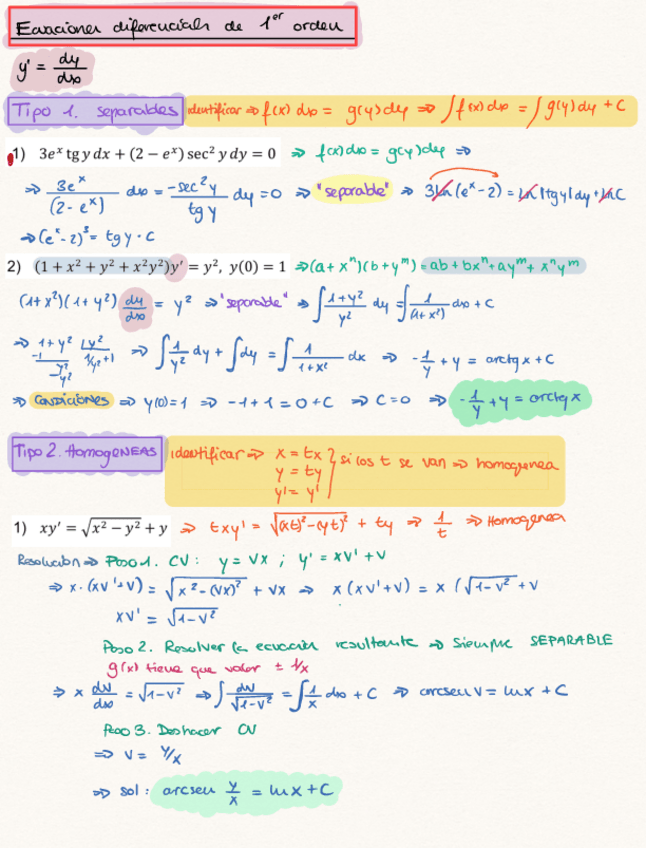 Ecuaciones diferenciales de 1er orden
y' = dy/dx
Tipo 1. separables identificar ⇒ f(x) dx = g(y) dy ⇒ ∫f(x) dx = ∫g(y) dy + C
1) 3eˣ tg y dx + (2 − eˣ) sec² y dy = 0 ⇒ f(x) dx = g(y) dy ⇒
⇒ 3eˣ/(2-eˣ) dx = -sec²y/tg y dy = 0 ⇒ "separable" ⇒ 3ln(eˣ-2) = ln|tgy|dy + lnC
⇒ (eˣ-2)³ = tg y · C
2) (1 + x² + y² + x²y²)y' = y², y(0) = 1 ⇒ (a+xⁿ)(b+yᵐ) = ab + bxⁿ + ayᵐ + xⁿyᵐ
(1+x²)(1+y²) dy/dx = y² ⇒ "separable" ⇒ ∫ 1+y²/y² dy = ∫ 1/(1+x²) dx + C
⇒ 1+y² |y² -1 1/y²+1 -y² y² ⇒ ∫ 1/y² dy + ∫dy = ∫ 1/1+x² dx ⇒ -1/y + y = arctg x + C
⇒ CONDICIONES ⇒ y(0)=1 ⇒ -1+1 = 0+C ⇒ C=0 ⇒ -1/y + y = arctg x
Tipo 2. HomogENEAS identificar ⇒ x = tx
y = ty
y' = y'
} si los t se van ⇒ homogenea
1) xy' = √(x² − y²) + y ⇒ txy' = √((xt)²-(yt)²) + ty ⇒ 1/t ⇒ Homogenea
Resolución ⇒ Paso 1. CV: y = vx ; y' = xv' + v
⇒ x·(xv'+v) = √(x²-(vx)²) + vx ⇒ x(xv'+v) = x(√(1-v²) + v
xv' = √(1-v²)
Paso 2. Resolver la ecuación resultante ⇒ Siempre SEPARABLE
g(x) tiene que valer ± 1/x
⇒ x dv/dx = √(1-v²) ⇒ ∫ dv/√(1-v²) = ∫ 1/x dx + C ⇒ arcsen v = lnx + C
Paso 3. Deshacer CV
⇒ v = y/x
⇒ sol: arcsen y/x = lnx + C